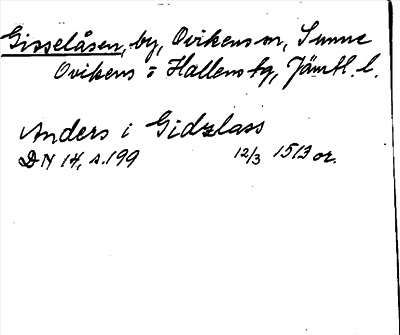 Gisselåsen, by, Ovikens sn, Sunne
Ovikens o Hallens tg, Jämtl. l.
Anders i Gidzlass
DN 14, s. 199 12/3 1513 or.